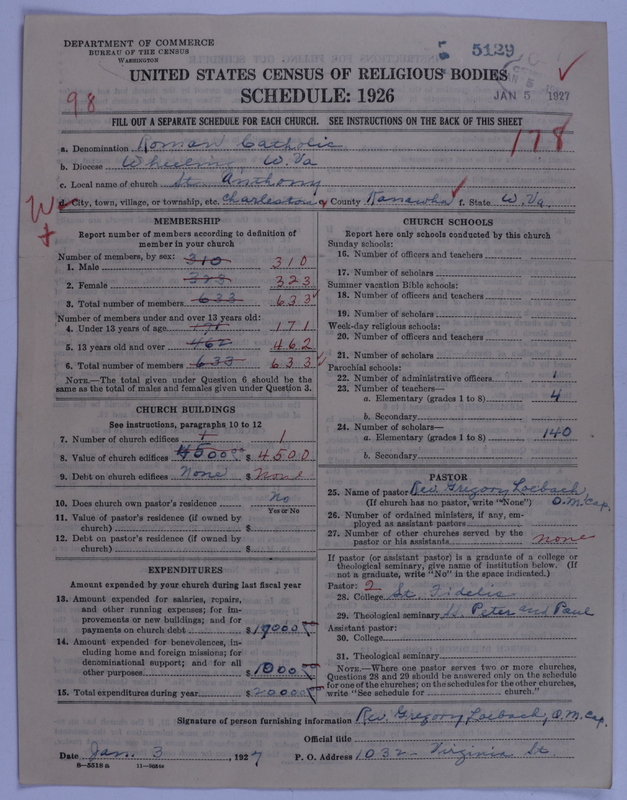 DEPARTMENT OF COMMERCE
BUREAU OF THE CENSUS
WASHINGTON
5129
UNITED STATES CENSUS OF RELIGIOUS BODIES
JAN 5 1927
98
SCHEDULE: 1926
FILL OUT A SEPARATE SCHEDULE FOR EACH CHURCH. SEE INSTRUCTIONS ON THE BACK OF THIS SHEET
178
a. Denomination Roman Catholic
b. Diocese Wheeling, W. Va
c. Local name of church St. Anthony
d. City, town, village, or township, etc. Charleston e. County Kanawha f. State W. Va.
MEMBERSHIP
Report number of members according to definition of
member in your church
Number of members, by sex:
1. Male 310 310
2. Female 323 323
3. Total number of members 633 633
Number of members under and over 13 years old:
4. Under 13 years of age 171 171
5. 13 years old and over 462 462
6. Total number of members 633 633
NOTE.—The total given under Question 6 should be the
same as the total of males and females given under Question 3.
CHURCH BUILDINGS
See instructions, paragraphs 10 to 12
7. Number of church edifices 1 1
8. Value of church edifices 4500 $ 4500
9. Debt on church edifices None $ None
10. Does church own pastor's residence No
Yes or No
11. Value of pastor's residence (if owned by
church) $
12. Debt on pastor's residence (if owned by
church) $
EXPENDITURES
Amount expended by your church during last fiscal year
13. Amount expended for salaries, repairs,
and other running expenses; for im-
provements or new buildings; and for
payments on church debt $ 19000
14. Amount expended for benevolences, in-
cluding home and foreign missions; for
denominational support; and for all
other purposes $ 1000
15. Total expenditures during year $ 20000
CHURCH SCHOOLS
Report here only schools conducted by this church
Sunday schools:
16. Number of officers and teachers
17. Number of scholars
Summer vacation Bible schools:
18. Number of officers and teachers
19. Number of scholars
Week-day religious schools:
20. Number of officers and teachers
21. Number of scholars
Parochial schools:
22. Number of administrative officers 1
23. Number of teachers—
a. Elementary (grades 1 to 8) 4
b. Secondary
24. Number of scholars—
a. Elementary (grades 1 to 8) 140
b. Secondary
PASTOR
25. Name of pastor Rev. Gregory Loebach,
(If church has no pastor, write "None") O.M.Cap.
26. Number of ordained ministers, if any, em-
ployed as assistant pastors
27. Number of other churches served by the
pastor or his assistants none
If pastor (or assistant pastor) is a graduate of a college or
theological seminary, give name of institution below. (If
not a graduate, write "No" in the space indicated.)
Pastor: 2
28. College St. Fidelis
29. Theological seminary Ss. Peter and Paul
Assistant pastor:
30. College
31. Theological seminary
NOTE.—Where one pastor serves two or more churches,
Questions 28 and 29 should be answered only on the schedule
for one of the churches; on the schedules for the other churches,
write "See schedule for church."
Signature of person furnishing information Rev. Gregory Loebach, O.M.Cap.
Official title
Date Jan. 3, 1927 P. O. Address 1032 Virginia St.
8—5518 a